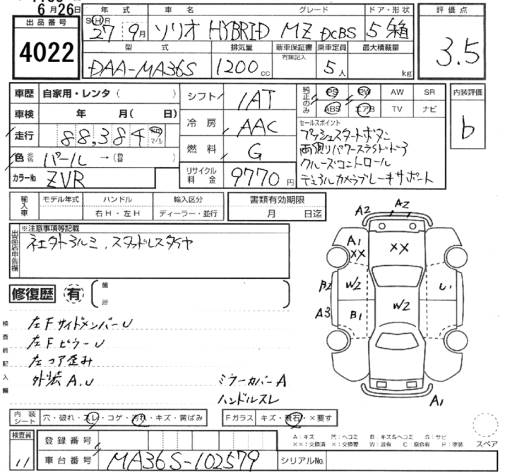 6月26日
出品番号
4022
年式 車名 グレード ドア・形状
SH 27年 9月 ソリオ HYBRID MZ DCBS 5 箱
型式 排気量 新車保証書 乗車定員 最大積載量
DAA-MA36S 1200cc 内諸記入 5人 kg
評価点
3.5
車歴 自家用・レンタ( )
車検 年 月( 日)
走行 88,384
色 パール →( )
カラーNo ZVR
シフト IAT
冷房 AAC
燃料 G
リサイクル料金 9770円
純正のみ PS PW AW SR
ABS エアB TV ナビ
セールスポイント
プッシュスタートボタン
両側パワースライドドア
クルーズコントロール
デュアルカメラブレーキサポート
内装評価
b
輸入車 モデル年式 ハンドル 輸入区分
右H・左H ディーラー・並行
書類有効期限
月 日迄
出品店申告欄 ※注意事項等記載
社外アルミ、スタッドレスタイヤ
修復歴 有 箇所
検査員記入欄
左Fサイドメンバー U
左Fピラー U
左コア歪み
外装 A、U
ミラーカバー A
ハンドルスレ
A2 A2
A1
XX XX
B2 W2 W2 U1
A3 B1
A1
内装シート 穴・破れ・スレ・コゲ・汚れ・キズ・黄ばみ
Fガラス キズ・飛石・×要す
スペア
検査員 11
登録番号
車台番号 MA36S-102579 シリアルNo.